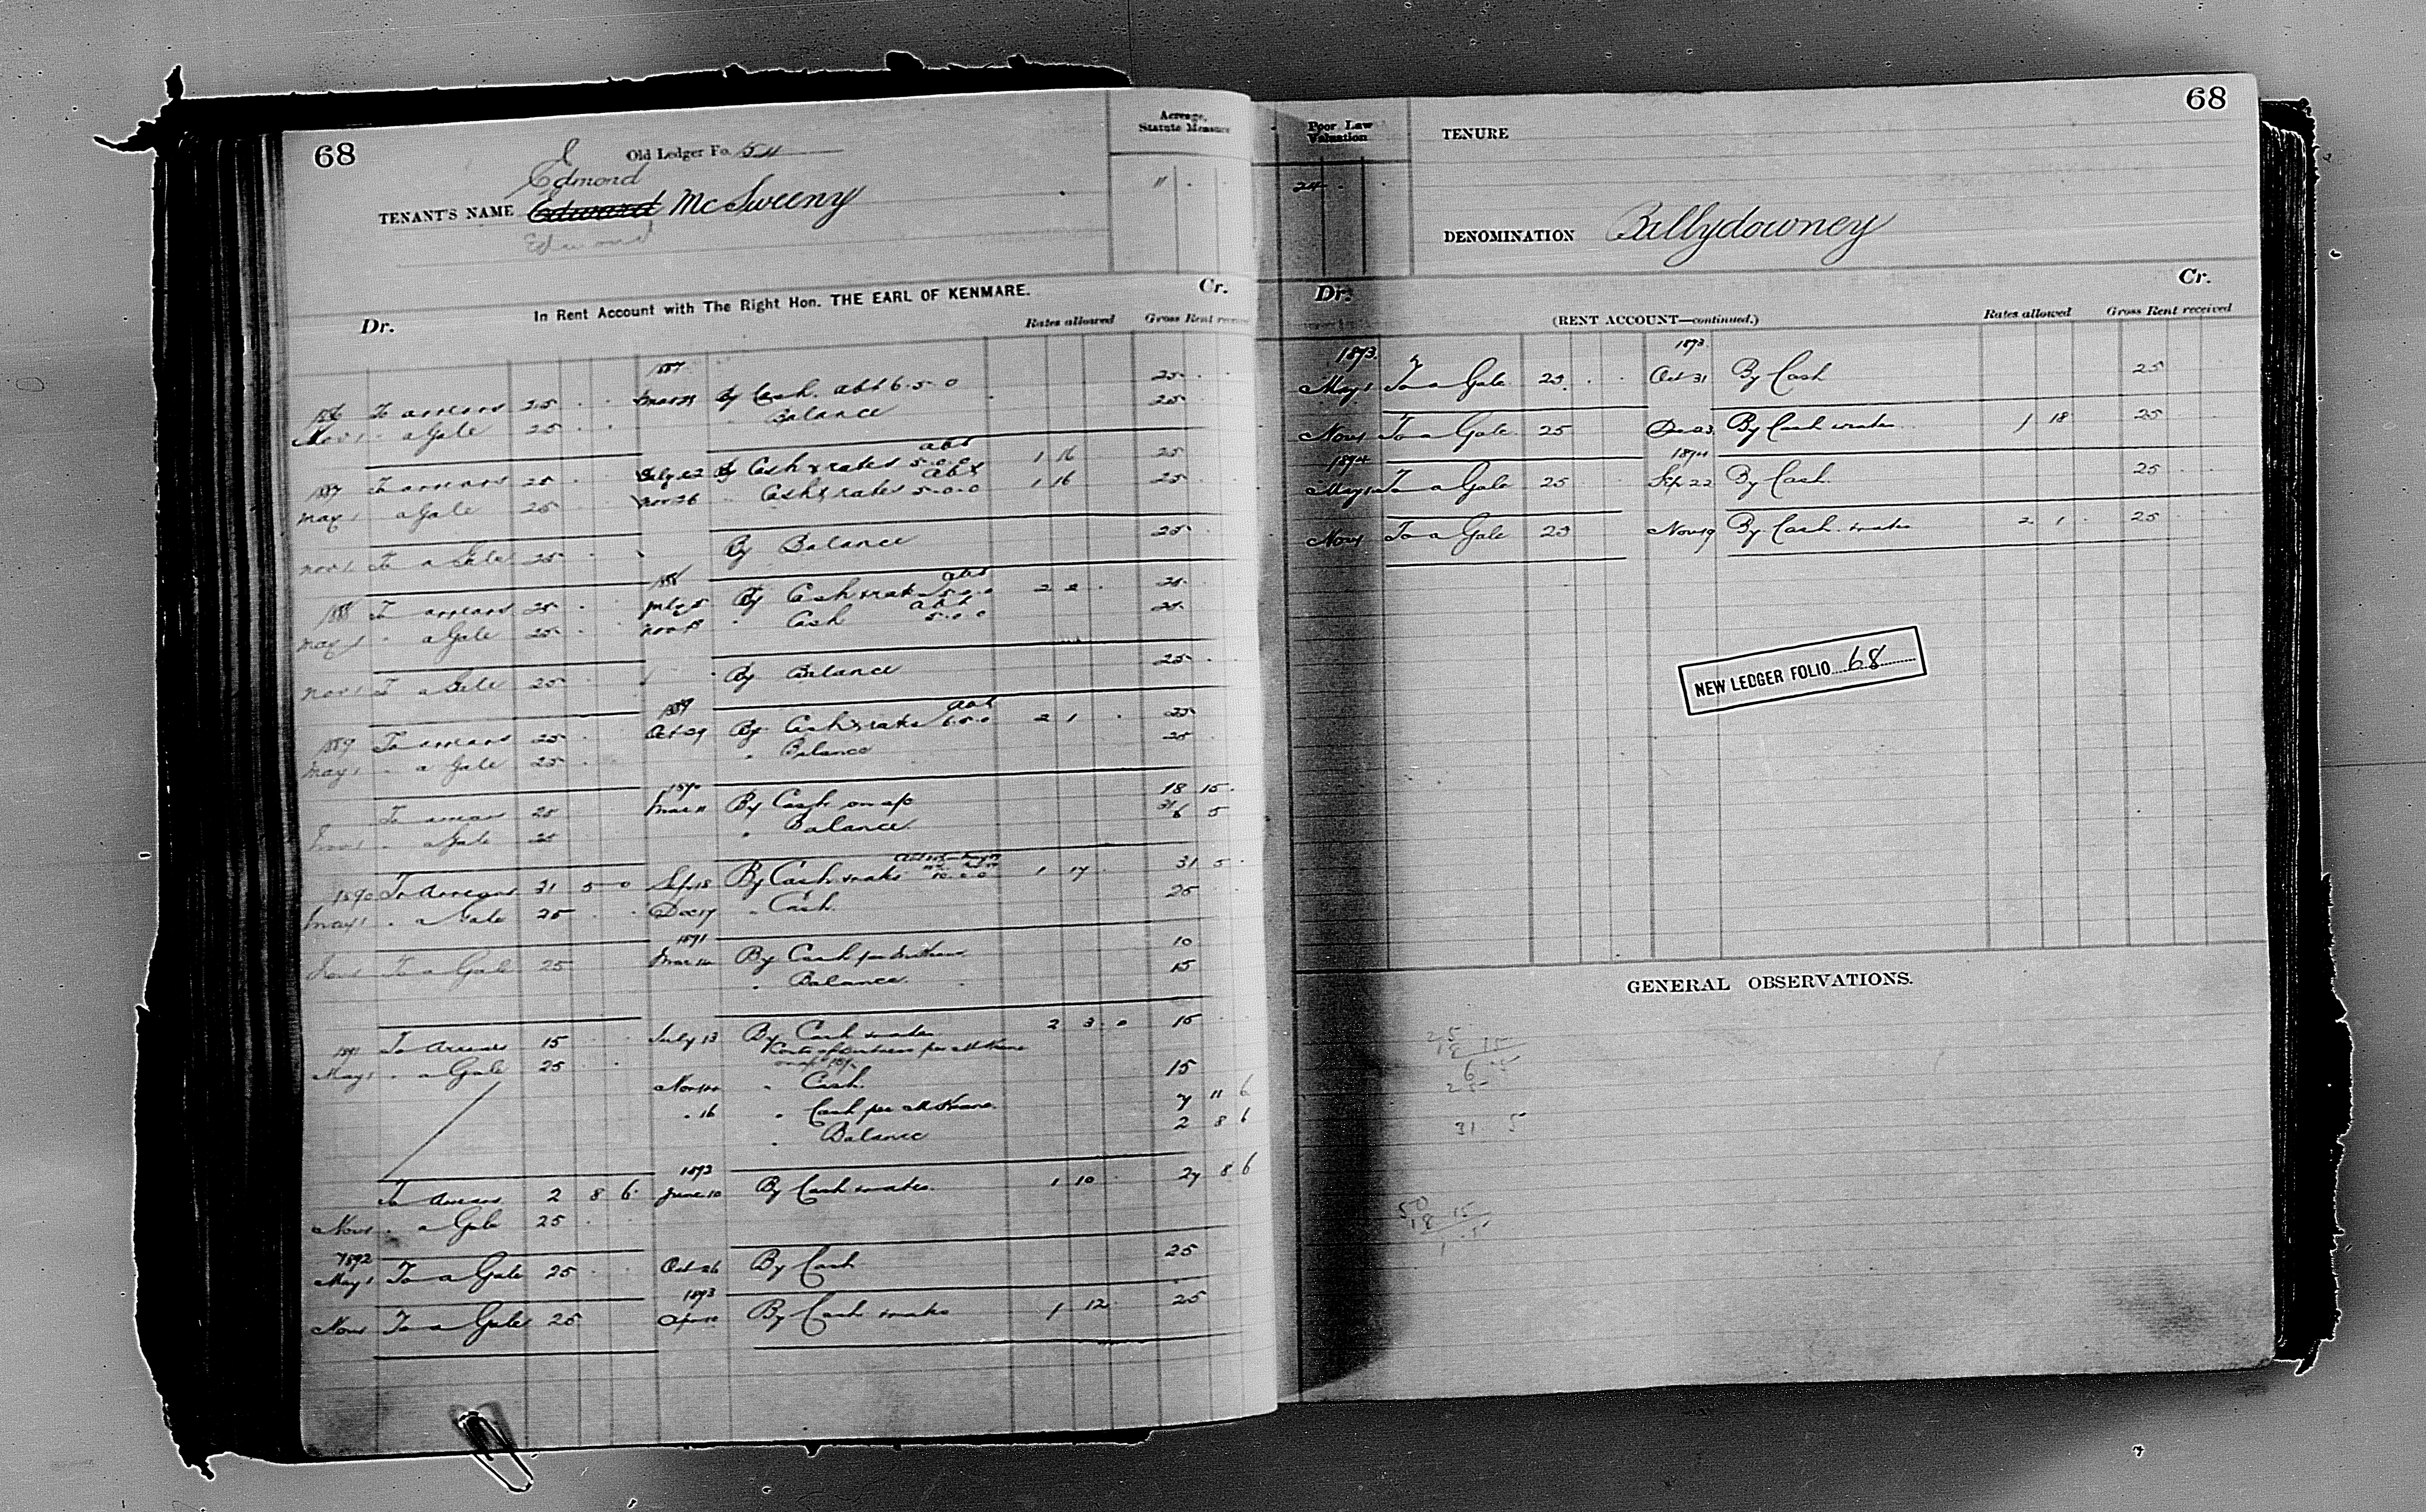 68
Old Ledger Fo. 54
Acreage, Statute Measure
E
Edmond
TENANT'S NAME Edward McSweeny
Edmond
In Rent Account with The Right Hon. THE EARL OF KENMARE.
Dr. Cr.
Rates allowed Gross Rent received
1887
1886 To arrears 25 By Cash. abt 6.5.0 25
Nov 1 " a Gale 25 " Balance 25
abt
1887 To arrears 25 July 22 By Cash & rates 5.0.0 1 16 25
abt
May 1 a Gale 25 Nov 26 " Cash & rates 5.0.0 1 16 25
Nov 1 To a Gale 25 By Balance 25
1888 abt
1888 To arrears 25 July 5 By Cash & rates 5.0.0 2 2 25
abt
May 1 " a Gale 25 Nov " Cash 5.0.0 25
Nov 1 To a Gale 25 By Balance 25
1889 abt
1889 To arrears 25 Oct 29 By Cash & rates 6.5.0 2 1 25
May 1 " a Gale 25 " Balance 25
1890
To arrears 25 Mar 11 By Cash on a/c 18 15
Nov 1 " a Gale 25 " Balance 31 5
6
1890 To Arrears 31 5 0 Sep 18 By Cash & rates 10.0.0 1 17 31 5
May 1 " a Gale 25 Dec 17 " Cash 25
1891
Nov 1 To a Gale 25 Mar By Cash per M Keane 10
" Balance 15
1891 To Arrears 15 July 13 By Cash & rates 2 3 0 15
May 1 " a Gale 25 Costs of per M Keane
Nov " Cash 15
" 16 " Cash per M Keane 7 11 6
" Balance 2 8 6
1892
To Arrears 2 8 6 June 10 By Cash & rates 1 10 27 8 6
Nov 1 " a Gale 25
1892
May 1 To a Gale 25 Oct 26 By Cash 25
1893
Nov 1 To a Gale 25 Apr By Cash & rates 1 12 25
68
Poor Law Valuation
24
TENURE
DENOMINATION Ballydowney
Dr. Cr.
(RENT ACCOUNT—continued.) Rates allowed Gross Rent received
1893. 1893
May 1 To a Gale 25 Oct 31 By Cash 25
Nov 1 To a Gale 25 Dec 23 By Cash & rates 1 18 25
1894 1894
May 1 To a Gale 25 Sep 22 By Cash 25
Nov 1 To a Gale 25 Nov 19 By Cash & rates 2 1 25
NEW LEDGER FOLIO 68
GENERAL OBSERVATIONS.
25
18 15
6 5
25
31 5
50
18 15
1 5